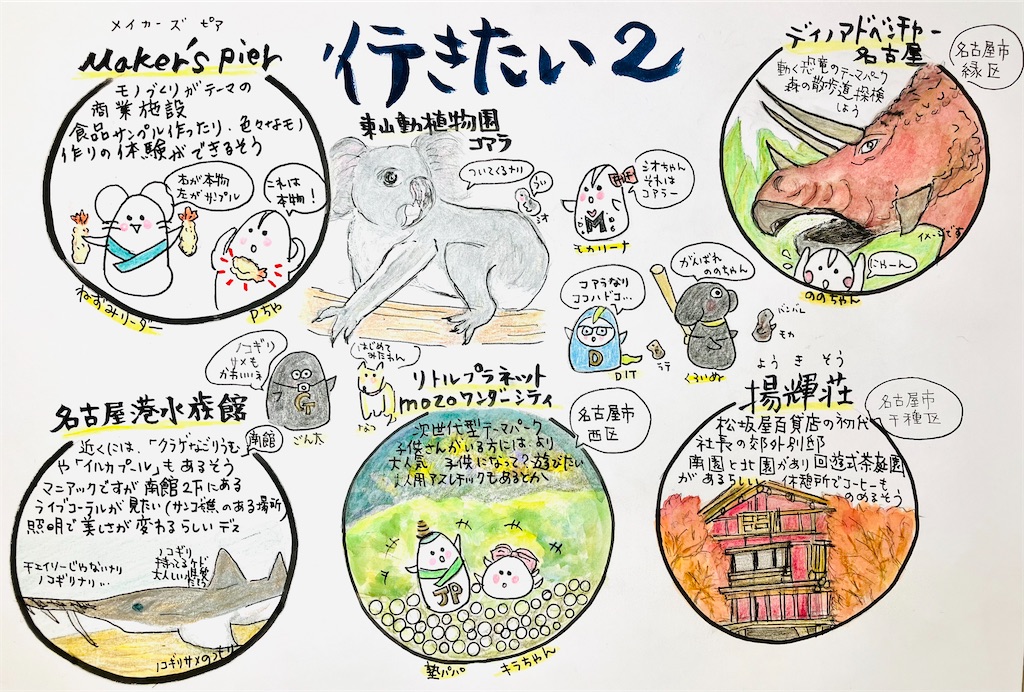 行きたい2
メイカーズ ピア
Maker's pier
モノづくりがテーマの
商業施設
食品サンプル作ったり、色々なモノ
作りの体験ができるそう
右が本物
左がサンプル
これは
本物!
ねずみリーダー
Pちゃ
東山動植物園
コアラ
ついてくるナリ
ミオ
ミオちゃん
それは
コアラー
M
モカリーナ
ディノアドベンチャー
名古屋
名古屋市
緑区
動く恐竜のテーマパーク
森の散歩道探検
しよう
イメージです
にゃーん
ののちゃん
コアラなり
ココハドコ…
D
DIT
ラテ
がんばれ
ののちゃん
くろいぬ
バンバレ
モカ
ノコギリ
サメも
かわいいネ
G
ごん太
はじめて
みたわん
名古屋港水族館
南館
近くには、「クラゲなごりうむ」
や「イルカプール」もあるそう
マニアックですが南館2Fにある
ライブコーラルが見たい(サンゴ礁のある場所)
照明で美しさが変わるらしいデス
チェイリーじゃないナリ
ノコギリナリ…
ノコギリ
持ってるケド
大人しい性質
だそう
リトルプラネット
mozoワンダーシティ
名古屋市
西区
次世代型テーマパーク
子供さんがいる方には、より
大人気 子供になって?遊びたい
大人用アスレチックもあるとか
JP
塾パパ
キラちゃん
ようきそう
揚輝荘
名古屋市
千種区
松坂屋百貨店の初代
社長の郊外別邸
南園と北園があり回遊式茶庭園
があるらしい 休憩所でコーヒーも
のめるそう